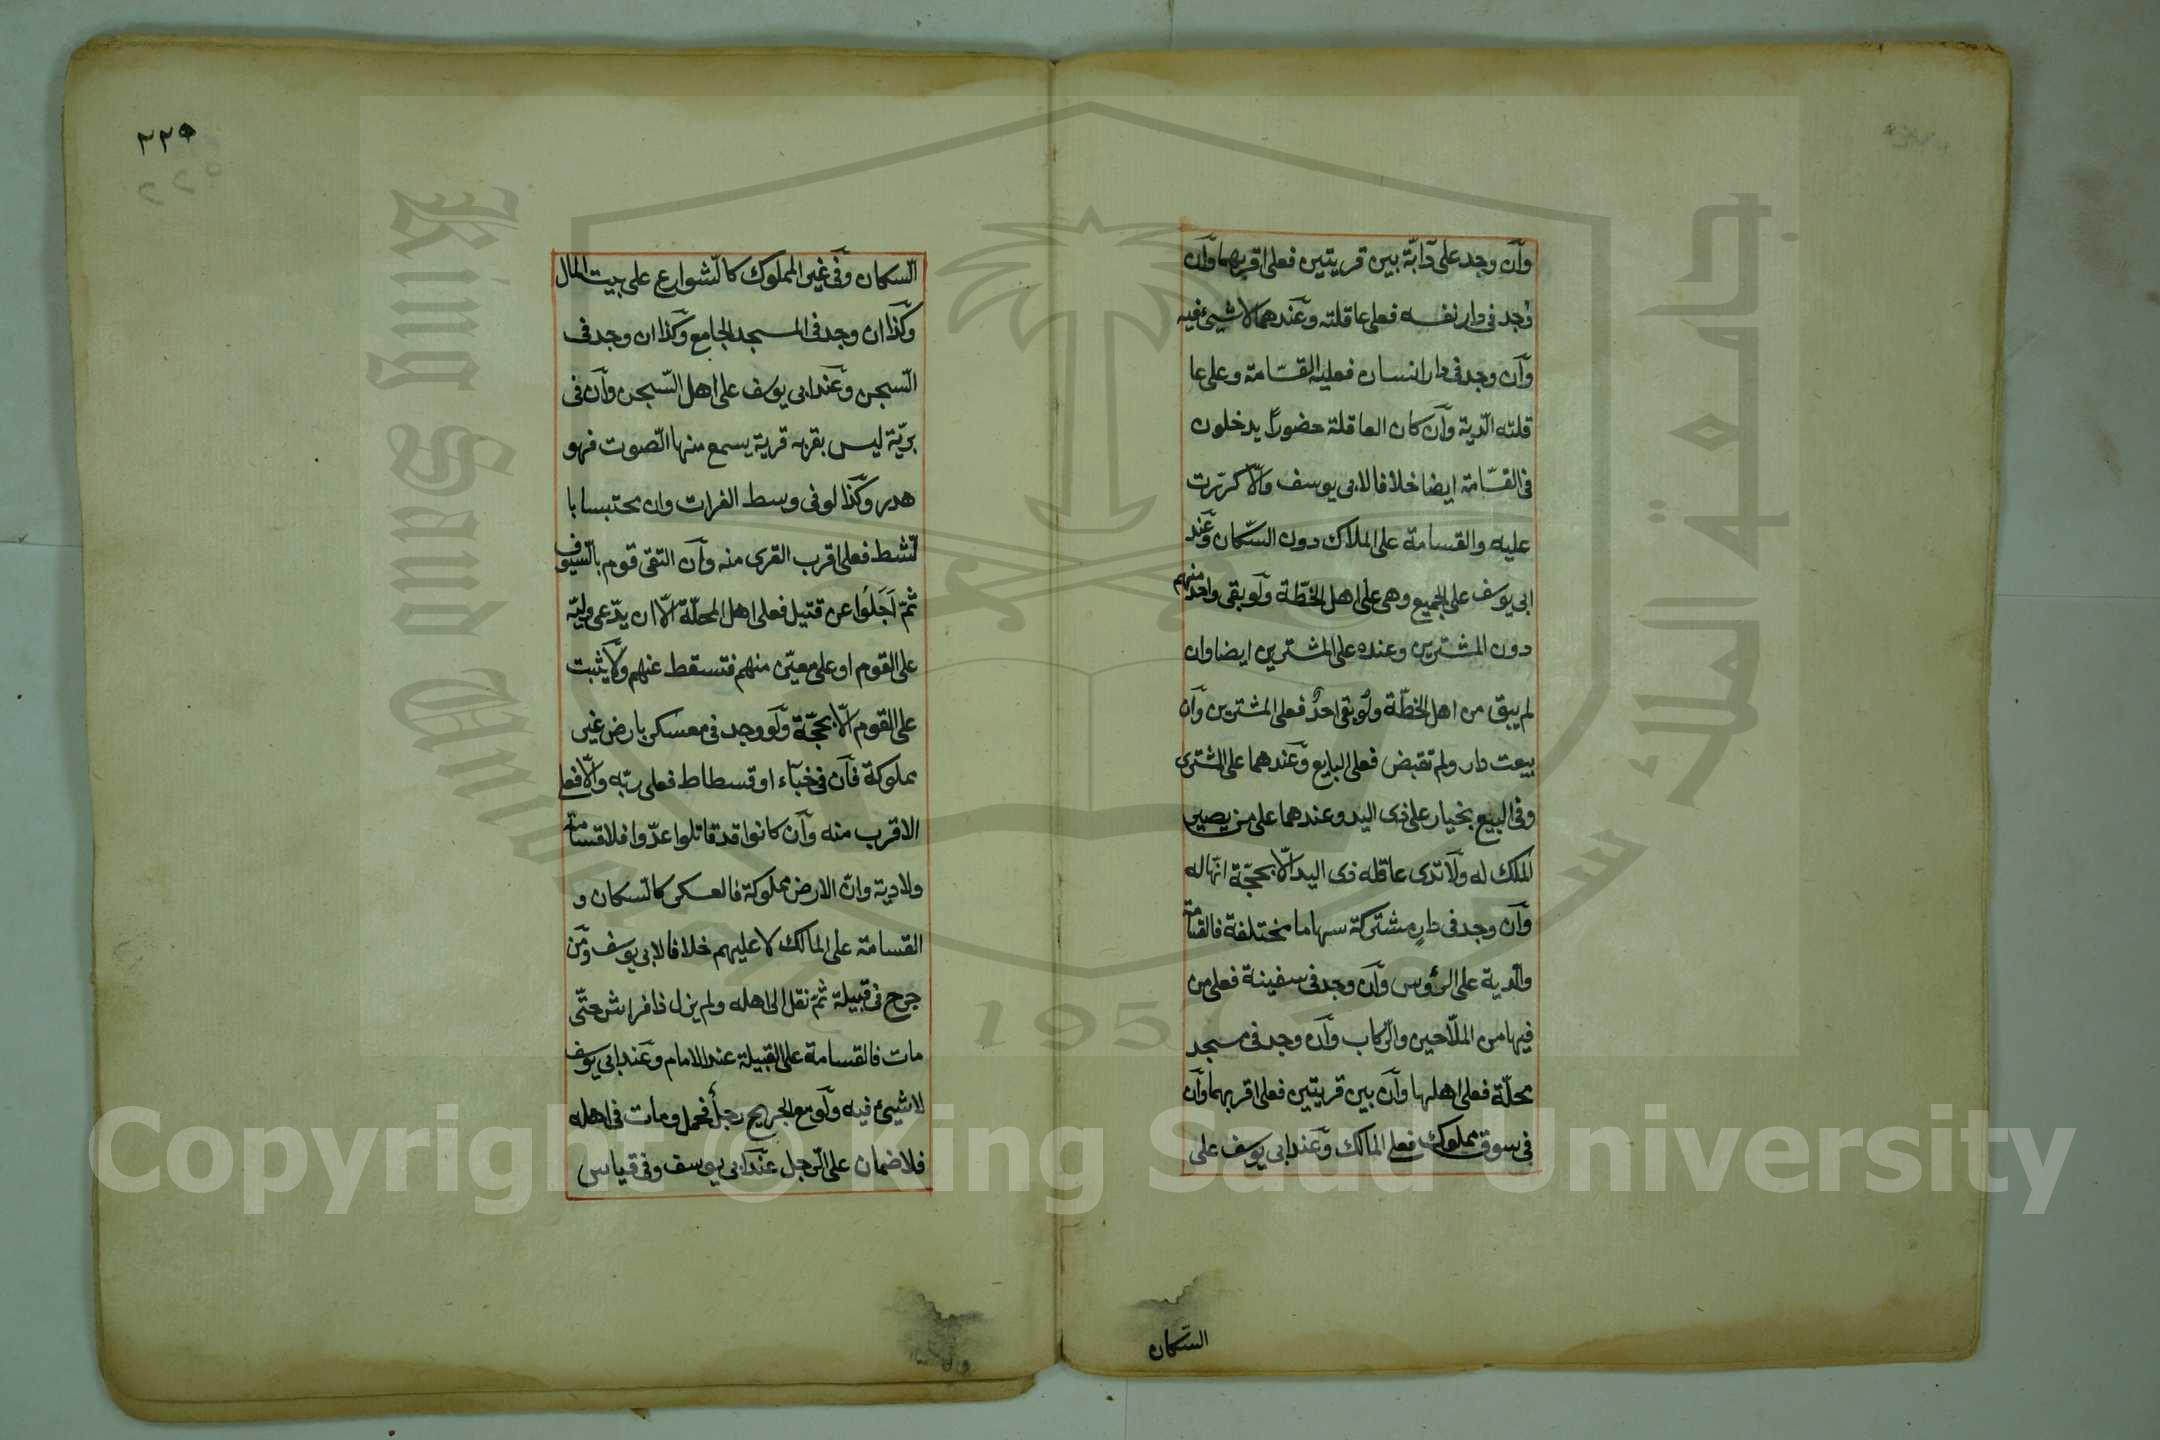 وان وجد على دابة بين قريتين فعلى اقربهما وان
وجد فى دار نفسه فعلى عاقلته وعندهما لا شيئ فيه
وان وجد فى دار انسان فعليه القسّامة وعلى عا
قلته الدية وان كان العاقلة حضورًا يدخلون
فى القسّامة ايضا خلافا لابى يوسف والّا كرّرت
عليه والقسامة على الملاك دون السكّان وعند
ابى يوسف على الجميع وهى على اهل الخطّة ولو بقى واحد منهم
دون المشترين وعنده على المشترين ايضا وان
لم يبق من اهل الخطّة ولو بقى احدٌ فعلى المشترين وان
بيعت دار ولم تقبض فعلى البايع وعندهما على المشترى
وفى البيع بخيار على ذى اليد وعندهما على من يصير
الملك له ولا تدى عاقله ذى اليد الّا بحجّة انّها له
وان وجد فى دارٍ مشتركة سهاما مختلفة فالقسامة
والدية على الرؤس وان وجد فى سفينة فعلى من
فيها من الملّاحين والركاب وان وجد فى مسجد
محلّة فعلى اهلها وان بين قريتين فعلى اقربهما وان
فى سوق مملوك فعلى المالك وعند ابى يوسف على
السكان
٢٢٥
السكان وفى غير المملوك كالشوارع على بيت المال
وكذا ان وجد فى المسجد الجامع وكذا ان وجد فى
السجن وعند ابى يوسف على اهل السجن وان فى
بريّة ليس بقربه قرية يسمع منها الصوت فهو
هدر وكذا لو فى وسط الفرات وان محتبسا با
لشط فعلى اقرب القرى منه وان التقى قوم بالسيوف
ثمّ اَجَلَوا عن قتيل فعلى اهل المحلّة الّا ان يدّعى وليّه
على القوم او على معيّن منهم فتسقط عنهم ولا يثبت
على القوم الّا بحجّة ولو وجد فى معسكر بارض غير
مملوكة فان فى خباء او قسطاط فعلى ربّه والّا فعلى
الاقرب منه وان كانوا قد قاتلوا عدّوا فلا قسامة
ولا دية وان الارض مملوكة فالعسكر كالسكان و
القسامة على المالك لا عليهم خلافا لابى يوسف ومن
جرح فى قبيلة ثمّ نقل الى اهله ولم يزل ذا فراش حتّى
مات فالقسامة على القبيلة عند الامام وعند ابى يوسف
لا شيئ فيه ولو مع الجريح رجل فحمل ومات فى اهله
فلا ضمان على الرجل عند ابى يوسف وفى قياس
King Saud University
جامعة الملك سعود
1957
Copyright © King Saud University